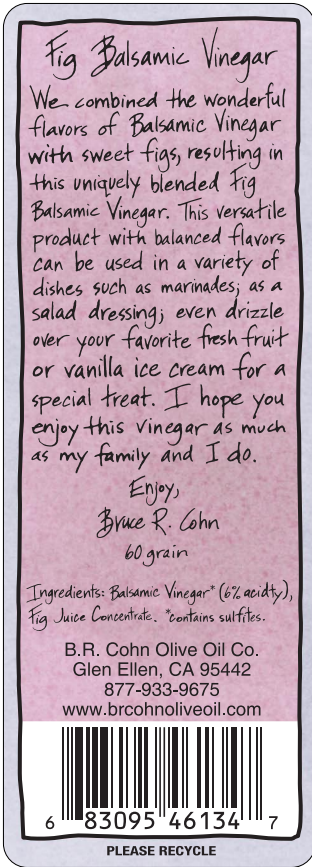 Fig Balsamic Vinegar
We combined the wonderful
flavors of Balsamic Vinegar
with sweet figs, resulting in
this uniquely blended Fig
Balsamic Vinegar. This versatile
product with balanced flavors
can be used in a variety of
dishes such as marinades; as a
salad dressing; even drizzle
over your favorite fresh fruit
or vanilla ice cream for a
special treat. I hope you
enjoy this vinegar as much
as my family and I do.
Enjoy,
Bruce R. Cohn
60 grain
Ingredients: Balsamic Vinegar* (6% acidty),
Fig Juice Concentrate. *contains sulfites.
B.R. Cohn Olive Oil Co.
Glen Ellen, CA 95442
877-933-9675
www.brcohnoliveoil.com
6 83095 46134 7
PLEASE RECYCLE